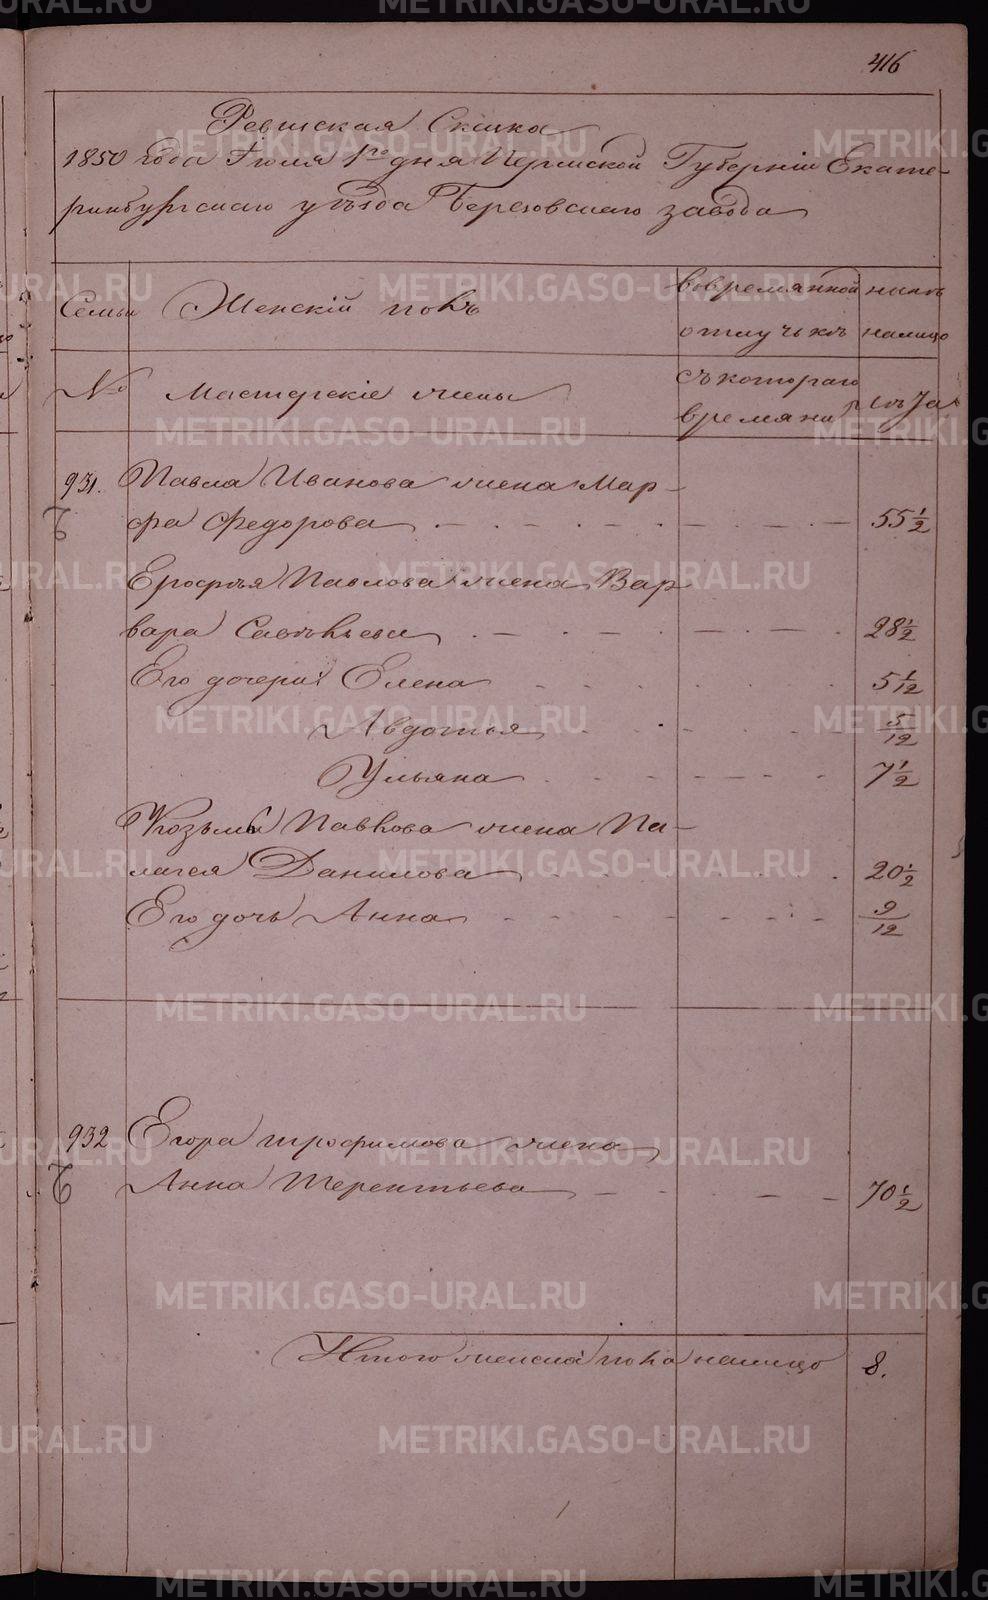 416
Ревизская Сказка
1850 года Июля 1го дня Пермской Губерніи Екате-
ринбургскаго уѣзда Березовскаго завода
Семьи Женскій полъ вовремянной нынѣ
отлучькѣ налицо
№ Мастерскіе жены съ котораго
времяни лѣта
931. Павла Иванова жена Мар-
фа Федорова 55 1/2
Ерофѣя Павлова жена Вар
вара Савельева 28 1/2
Его дочери Елена 5 1/12
Авдотья 5/12
Ульяна 7 1/2
Козьмы Павлова жена Па-
лагея Данилова 20 1/2
Его дочь Анна 9/12
932 Егора трофимова жена
Анна Терентьева 70 1/2
Итого женска пола налицо 8.
METRIKI.GASO-URAL.RU